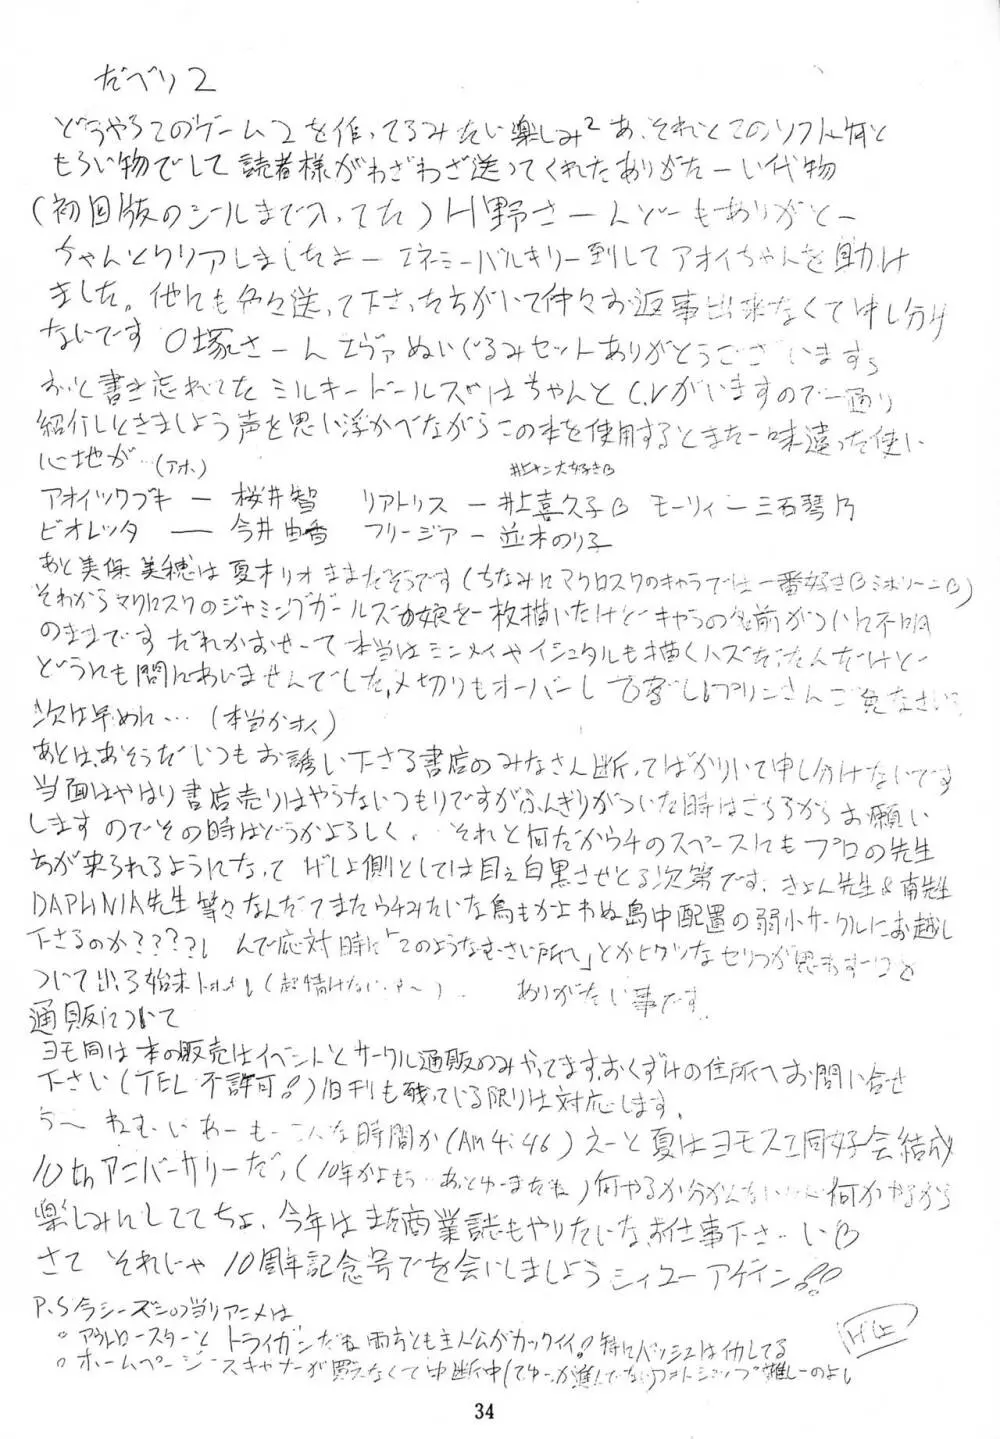 だべり2
どうやらこのゲーム2を作ってるみたい楽しみ2 あ、それとこのソフト何と
もらい物でして読者様がわざわざ送ってくれたありがたーい代物
(初回版のシールまで入ってた) H野さーんどーもありがとー
ちゃんとクリアしましたよー エネミーバルキリー倒してアオイちゃんを助け
ました。他にも色々送って下さった方がいて中々お返事出来なくて申し分け
ないです O塚さーんエヴァぬいぐるみセットありがとうございます
おっと書き忘れてた ミルキードールズにはちゃんとC.Vがいますので一通り
紹介しときましょう声を思い浮かべながらこの本を使用するとまた一味違った使い
心地が… (アホ)
井上キャン大好き
アオイツクブキ ー 桜井智 リアトリス ー 井上喜久子 モーリィ ー 三石琴乃
ビオレッタ ー 今井由香 フリージア ー 並木のり子
あと美保美穂は夏木リオままだそうです (ちなみにマクロス7のキャラでは一番好き ミホリーニ)
それからマクロス7のジャミングガールズの娘を一枚描いたけどキャラの名前がついに不明
のままです だれかおせーて 本当はミンメイやイシュタルも描くハズだったんだけど
どうにも間にあいませんでした、〆切りもオーバーし プリンさんご免なさい
次は早めに… (本当かオイ)
あとは、あそうだ いつもお誘い下さる書店のみなさん断ってばかりいて申し分けないです
当面はやはり書店売りはやらないつもりですがふんぎりがついた時はこちらからお願い
しますのでその時はどうかよろしく、 それと何だかウチのスペースにもプロの先生
方が来られるようになって げしょ側としては目を白黒させとる次第です、きょん先生&南先生
DAPHNIA先生等々なんだってまたウチみたいな鳥もかよわぬ島中配置の弱小サークルにお越し
下さるのか????! んで応対時に「このようなむさい所へ」とかヒクツなセリフが思わず
ついて出る始末 (超情けない) ありがたい事です
通販について
ヨモ同は本の販売はイベントとサークル通販のみやってます、おくずけの住所へお問い合せ
下さい (TEL 不許可!) 旧刊も残っている限りは対応します、
う〜 ねむいわーもーこんな時間か (Am4:46) えーと夏はヨモスエ同好会結成
10thアニバーサリーだっ (10年かよもう) 何やるか分かんない 何かやるから
楽しみにしててちょ、今年はまた商業誌もやりたいな、お仕事下さーい
さて それじゃ 10周年記念号でお会いしましょう シィユーアゲイン!!
P.S 今シーズンの当りアニメは
○ アウトロースターと トライガンだね 両方とも主人公がカックイイ! 特にバッシュはイカしてる
○ ホームページ スキャナーが買えなくて中断中
34